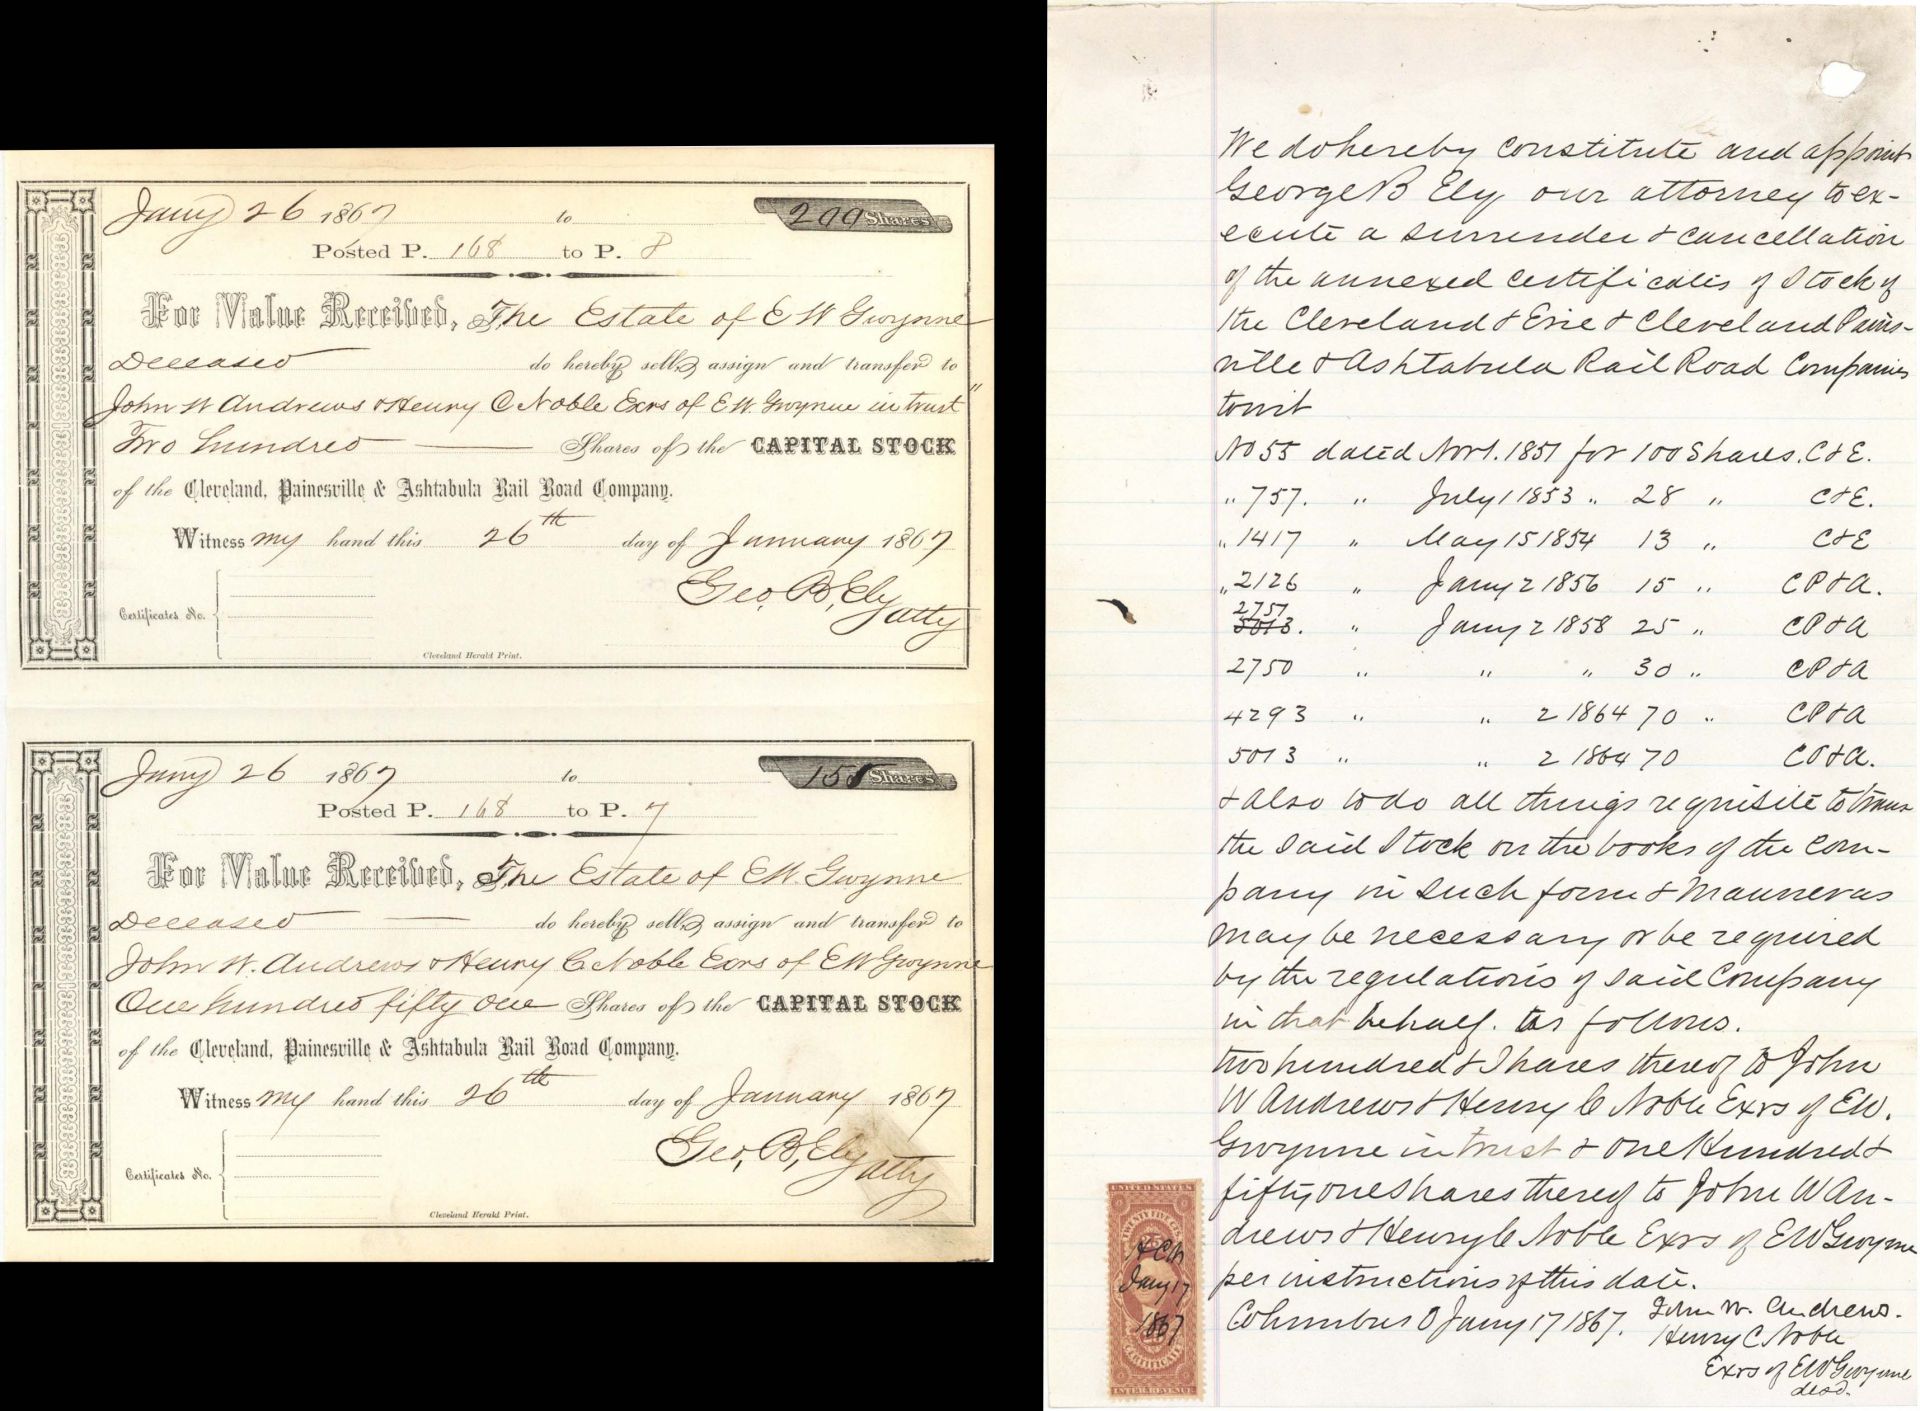 Jany 26 1867 to 200 Shares
Posted P. 168 to P. 8
For Value Received, The Estate of E W Gwynne
Deceased do hereby sell, assign and transfer to
John W Andrews & Henry C Noble Exrs of E W. Gwynne in trust "
Two hundred Shares of the CAPITAL STOCK
of the Cleveland, Painesville & Ashtabula Rail Road Company.
Witness my hand this 26th day of January 1867
Geo. B. Ely
atty
Certificates No.
Cleveland Herald Print.
Jany 26 1867 to 151 Shares
Posted P. 168 to P. 7
For Value Received, The Estate of E W. Gwynne
Deceased do hereby sell, assign and transfer to
John W. Andrews & Henry C Noble Exrs of E W Gwynne
One hundred fifty one Shares of the CAPITAL STOCK
of the Cleveland, Painesville & Ashtabula Rail Road Company.
Witness my hand this 26th day of January 1867
Geo. B. Ely
atty
Certificates No.
Cleveland Herald Print.
We do hereby constitute and appoint
George B Ely our attorney to ex-
ecute a surrender & cancellation
of the annexed certificates of Stock of
the Cleveland & Erie & Cleveland Pains-
ville & Ashtabula Rail Road Companies
towit
No 55 dated Nov 1. 1851 for 100 Shares. C & E.
" 757. " July 1 1853 " 28 " C & E.
" 1417 " May 15 1854 13 " C & E
" 2126 " Jany 2 1856 15 " C P & A.
2751
5013. " Jany 2 1858 25 " C P & A
2750 " " " 30 " C P & A
4293 " " 2 1864 70 " C P & A
5013 " " 2 1864 70 C P & A.
& also to do all things requisite to trans
the said Stock on the books of the Com-
pany in such form & manner as
may be necessary or be required
by the regulations of said Company
in that behalf. as follows.
two hundred Shares thereof to John
W Andrews & Henry C Noble Exrs of E W.
Gwynne in trust & one Hundred &
fifty one Shares thereof to John W An-
drews & Henry C Noble Exrs of E W Gwynne
per instructions of this date.
Columbus O Jany 17 1867. John W. Andrews.
Henry C Noble
Exrs of E W Gwynne
decd.
UNITED STATES
TWENTY FIVE
25
H C N
Jany 17
1867
CERTIFICATE
INTER. REVENUE